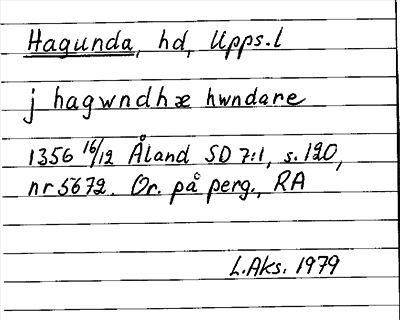 Hagunda, hd, Upps.l
j hagwndhæ hwndare
1356 16/12 Åland SD 7:1, s. 120,
nr 5672. Or. på perg., RA
L.Aks. 1979